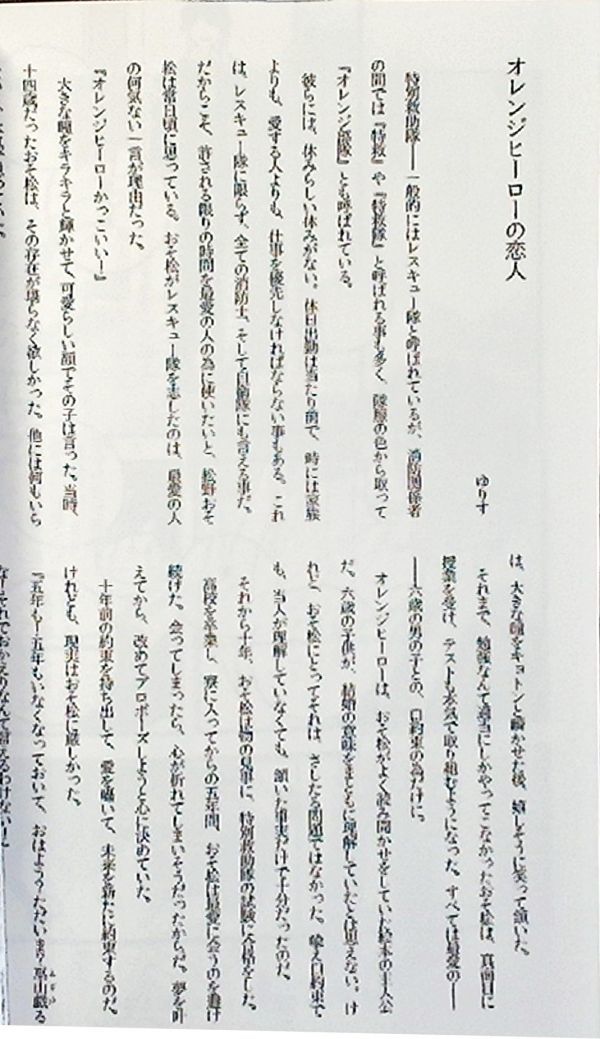 オレンジヒーローの恋人
ゆりす
特別救助隊――一般的にはレスキュー隊と呼ばれているが、消防関係者
の間では『特救』や『特救隊』と呼ばれる事も多く、隊服の色から取って
『オレンジ部隊』とも呼ばれている。
彼らには、休みらしい休みがない。休日出勤は当たり前で、時には家族
よりも、愛する人よりも、仕事を優先しなければならない事もある。これ
は、レスキュー隊に限らず、全ての消防士、そして自衛隊にも言える事だ。
だからこそ、許される限りの時間を最愛の人の為に使いたいと、松野おそ
松は常日頃に思っている。おそ松がレスキュー隊を志したのは、最愛の人
の何気ない一言が理由だった。
『オレンジヒーローかっこいい！』
大きな瞳をキラキラと輝かせて、可愛らしい顔でその子は言った。当時、
十四歳だったおそ松は、その存在が堪らなく欲しかった。他には何もいら
は、大きな瞳をキョトンと瞬かせた後、嬉しそうに笑って頷いた。
それまで、勉強なんて適当にしかやってこなかったおそ松は、真面目に
授業を受け、テストも本気で取り組むようになった。すべては最愛の――
――六歳の男の子との、口約束の為だけに。
オレンジヒーローは、おそ松がよく読み聞かせをしていた絵本の主人公
だ。六歳の子供が、結婚の意味をまともに理解していたとは思えない。け
れど、おそ松にとってそれは、さしたる問題ではなかった。例え口約束で
も、当人が理解していなくても、頷いた事実だけで十分だったのだ。
それから十年、おそ松は物の見事に、特別救助隊の試験に合格をした。
高校を卒業し、寮に入ってからの五年間、おそ松は最愛に会うのを避け
続けた。会ってしまったら、心が折れてしまいそうだったからだ。夢を叶
えてから、改めてプロポーズしようと心に決めていた。
十年前の約束を持ち出して、愛を囁いて、未来を新たに約束するのだ。
けれども、現実はおそ松に厳しかった。
『五年も！五年もいなくなっておいて、おはよう？ただいま？